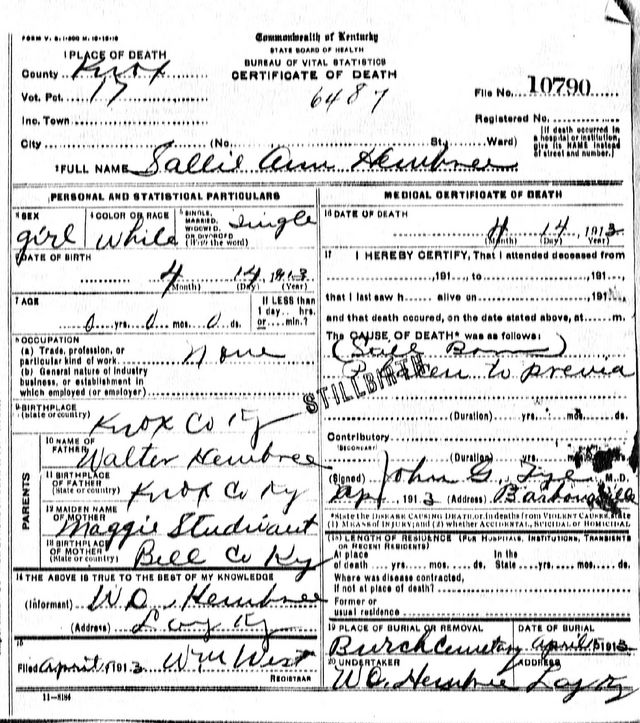 FORM V. S. 1-500 M. 10-10-10
Commonwealth of Kentucky
STATE BOARD OF HEALTH
BUREAU OF VITAL STATISTICS
CERTIFICATE OF DEATH
1 PLACE OF DEATH
County Knox
Vot. Pct. 17
6487
File No. 10790
Inc. Town
Registered No.
City (No. St., Ward)
[If death occurred in
a hospital or institution,
give its NAME instead
of street and number.]
2 FULL NAME Sallie Ann Hembree
PERSONAL AND STATISTICAL PARTICULARS
3 SEX
girl
4 COLOR OR RACE
While
5 SINGLE,
MARRIED,
WIDOWED,
OR DIVORCED
(Write the word)
single
DATE OF BIRTH
4 14 1913
(Month) (Day) (Year)
7 AGE
0 yrs. 0 mos. 0 ds.
If LESS than
1 day.. hrs.
or.... min.?
8 OCCUPATION
(a) Trade, profession, or
particular kind of work
none
(b) General nature of industry
business, or establishment in
which employed (or employer)
9 BIRTHPLACE
(State or country)
Knox Co Ky
PARENTS
10 NAME OF
FATHER
Walter Hembree
11 BIRTHPLACE
OF FATHER
(State or country)
Knox Co Ky
12 MAIDEN NAME
OF MOTHER
Maggie
13 BIRTHPLACE
OF MOTHER
(State or country)
Bell Co Ky
14 THE ABOVE IS TRUE TO THE BEST OF MY KNOWLEDGE
(Informant) W O. Hembree
(Address) Lay Ky
15
Filed April 15 1913 Wm West
REGISTRAR
11-8184
MEDICAL CERTIFICATE OF DEATH
16 DATE OF DEATH
4 14 1913
(Month) (Day) (Year)
17 I HEREBY CERTIFY, That I attended deceased from
, 191..., to , 191...,
that I last saw h alive on , 191
and that death occured, on the date stated above, at m.
The CAUSE OF DEATH* was as follows:
(Still Born)
STILLBIRTH
previa
(Duration) yrs. mos. ds.
Contributory
(SECONDARY)
(Duration) yrs. mos. ds.
(Signed) John G. Tye M.D.
Apr 1913 (Address) Barbourville
*State the DISEASE CAUSING DEATH, or, in deaths from VIOLENT CAUSES, state
(1) MEANS OF INJURY; and (2) whether ACCIDENTAL, SUICIDAL or HOMICIDAL
18 LENGTH OF RESIDENCE (FOR HOSPITALS, INSTITUTIONS, TRANSIENTS
OR RECENT RESIDENTS)
At place
of death yrs. mos. ds.
In the
State yrs. mos. ds.
Where was disease contracted,
if not at place of death?
Former or
usual residence
19 PLACE OF BURIAL OR REMOVAL
Burch Cemetary
DATE OF BURIAL
April 15 1913
20 UNDERTAKER
W O. Hembree
ADDRESS
Lay Ky